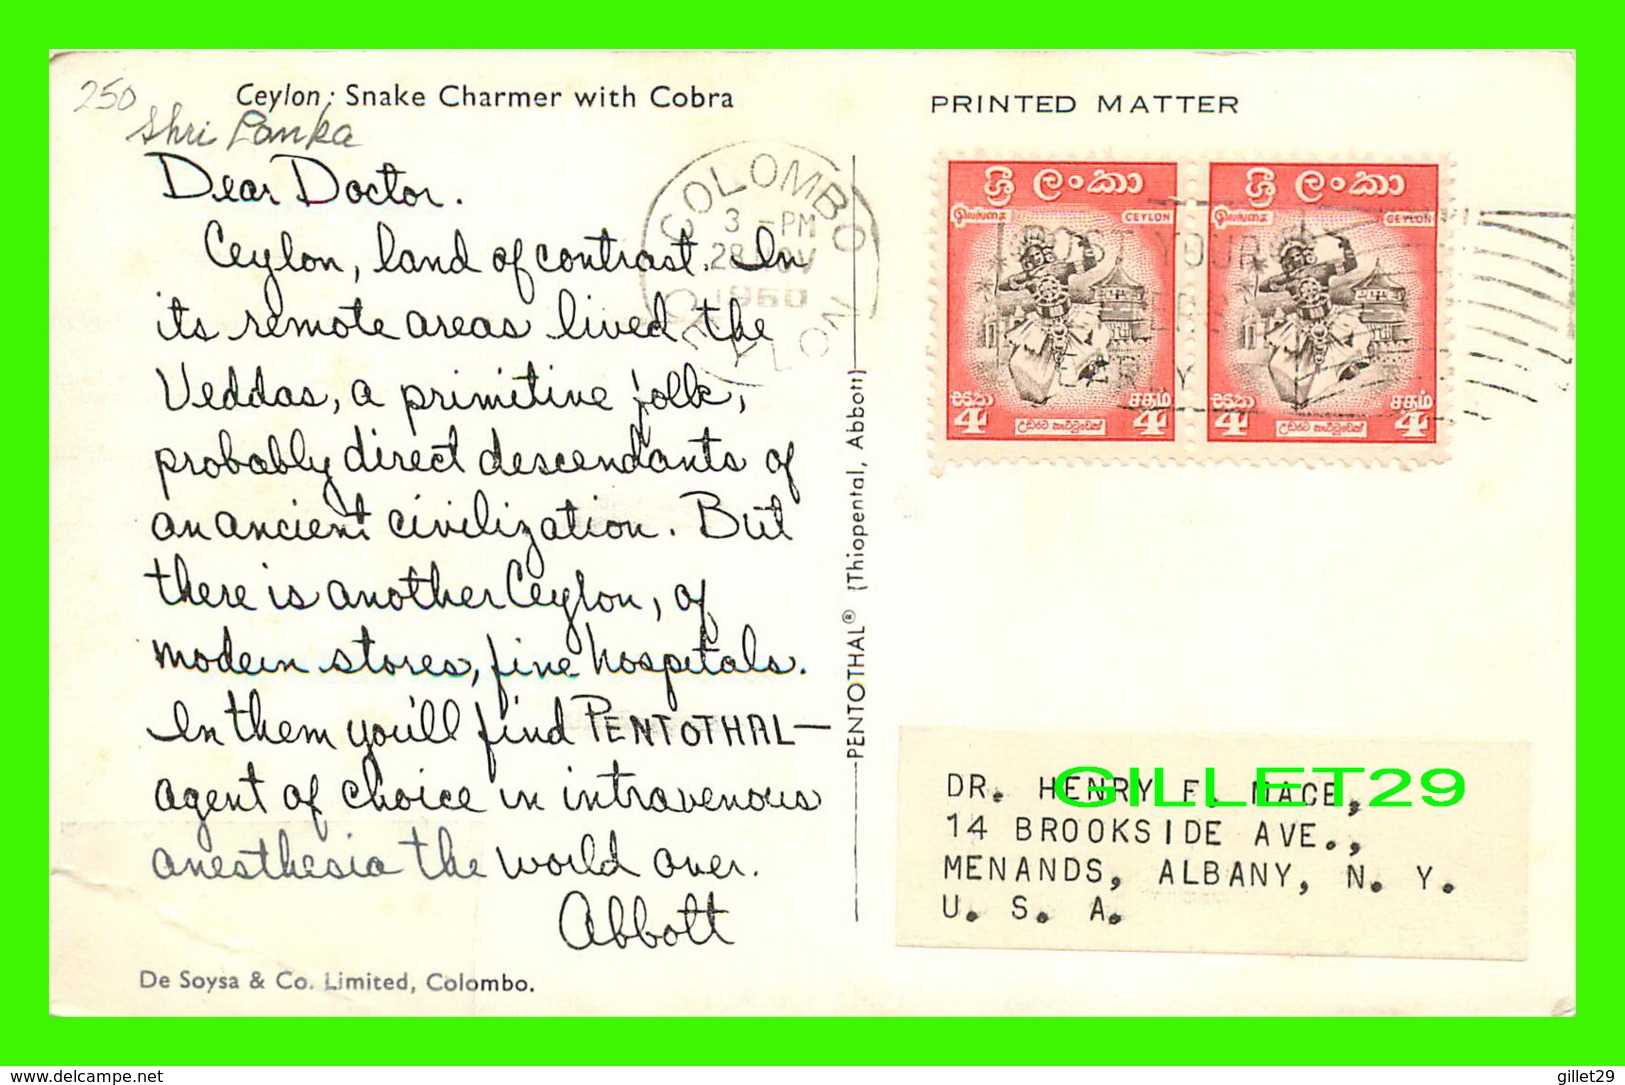 250
Ceylon: Snake Charmer with Cobra
Shri Lanka
Dear Doctor.
Ceylon, land of contrast. In
its remote areas lived the
Veddas, a primitive folk,
probably direct descendants of
an ancient civilization. But
there is another Ceylon, of
modern stores, fine hospitals.
In them you'll find PENTOTHAL—
agent of choice in intravenous
anesthesia the world over.
Abbott
De Soysa & Co. Limited, Colombo.
PENTOTHAL® (Thiopental, Abbott)
COLOMBO
3 -PM
28 NOV
1960
CEYLON
PRINTED MATTER
ශ්‍රී ලංකා
இலங்கை CEYLON
POST YOUR
EARLY
සත 4 சதம் 4
උඩරට නැට්ටුවෙක්
ශ්‍රී ලංකා
இலங்கை CEYLON
සත 4 சதம் 4
උඩරට නැට්ටුවෙක්
DR. HENRY F. MACE,
14 BROOKSIDE AVE.,
MENANDS, ALBANY, N. Y.
U. S. A.
GILLET29
https://www.delcampe.net
gillet29